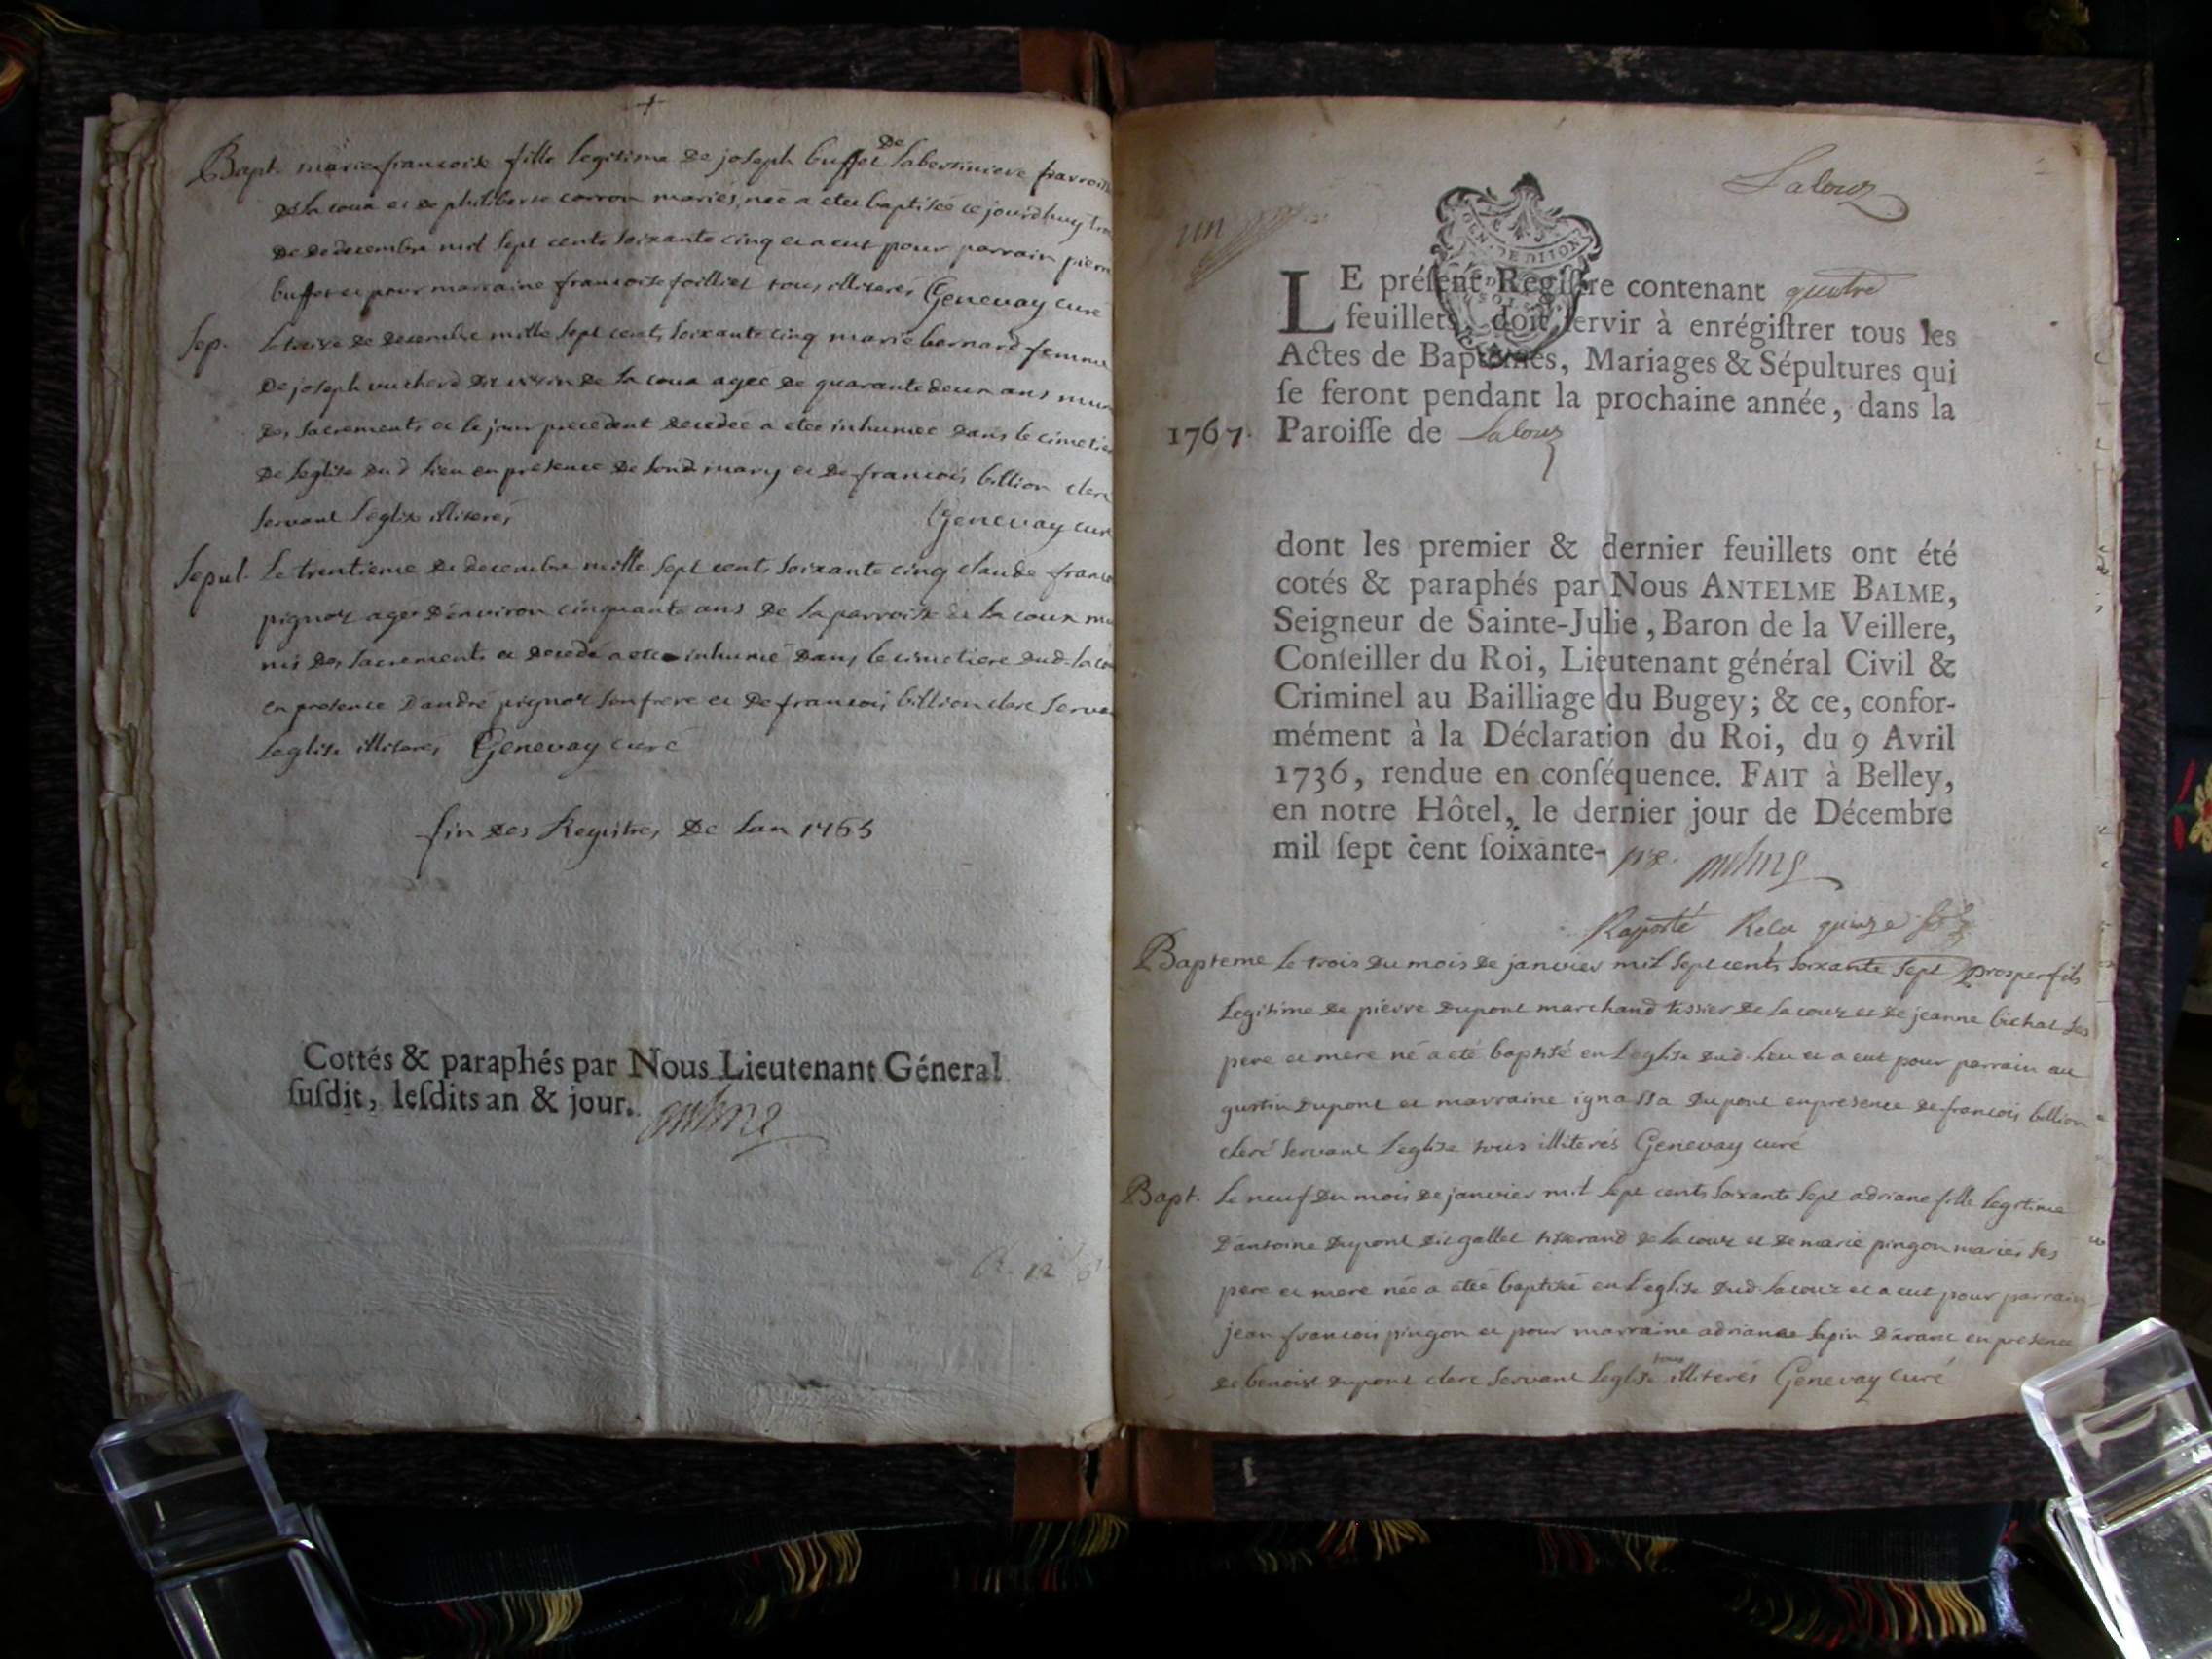 +
Bapt. marie francoise fille legitime de joseph buffet de labertiniere parroisse
de la coux et de philiberte corron mariés, née a etee baptisée ce jourdhuy
de decembre mil sept cents soixante cinq et a eut pour parrain pierre
buffet et pour marraine francoise foilliet tous illiterés Genevay curé
Sep. Le treize de decembre mille sept cents soixante cinq marie bernard femme
de joseph vucherd dit de la coux agée de quarante deux ans munie
des sacrements et le jour precedent decedée a etee inhumee dans le cimetiere
de leglise dud lieu en presence de sond mary et de francois billion clerc
servant leglise illiterés Genevay curé
Sepul. Le trentieme de decembre mille sept cents soixante cinq claude francois
pignox agé d'environ cinquante ans de la parroisse de la coux mu
nis des sacrements et decedé a ete inhumé dans le cimetiere dud. la coux
en presence d'andre pignox son frere et de francois billion clerc servant
leglise illiterés Genevay curé
fin des Registres de Lan 1765
Cottés & paraphés par Nous Lieutenant Géneral
susdit, lesdits an & jour.
Lalouz
un
LE présent Registre contenant quatre
feuillets, doit servir à enrégistrer tous les
Actes de Baptêmes, Mariages & Sépultures qui
se feront pendant la prochaine année, dans la
1767. Paroisse de Lalouz
dont les premier & dernier feuillets ont été
cotés & paraphés par Nous ANTELME BALME,
Seigneur de Sainte-Julie, Baron de la Veillere,
Conseiller du Roi, Lieutenant général Civil &
Criminel au Bailliage du Bugey; & ce, confor-
mément à la Déclaration du Roi, du 9 Avril
1736, rendue en conséquence. FAIT à Belley,
en notre Hôtel, le dernier jour de Décembre
mil sept cent soixante-
Rapporté Relu quinze
Bapteme Le trois du mois de janvier mil sept cents soixante sept prosper fils
legitime de pierre dupont marchand tissier de lacouz et de jeanne bichat ses
pere et mere né a eté baptisé en leglise dud. lieu et a eut pour parrain au
gustin dupont et marraine ignassa dupont en presence de francois billion
cleré servant leglise tous illiterés Genevay curé
Bapt. Le neuf du mois de janvier mil sept cents soixante sept adriane fille legitime
d'antoine dupont dit gallet tisserand de lacouz et de marie pingon mariés ses
pere et mere née a étée baptisée en leglise dud. lacouz et a eut pour parrain
jean francois pingon et pour marraine adriane sapin d'aranc en presence
de benoist dupont clerc servant leglise tous illiterés Genevay curé